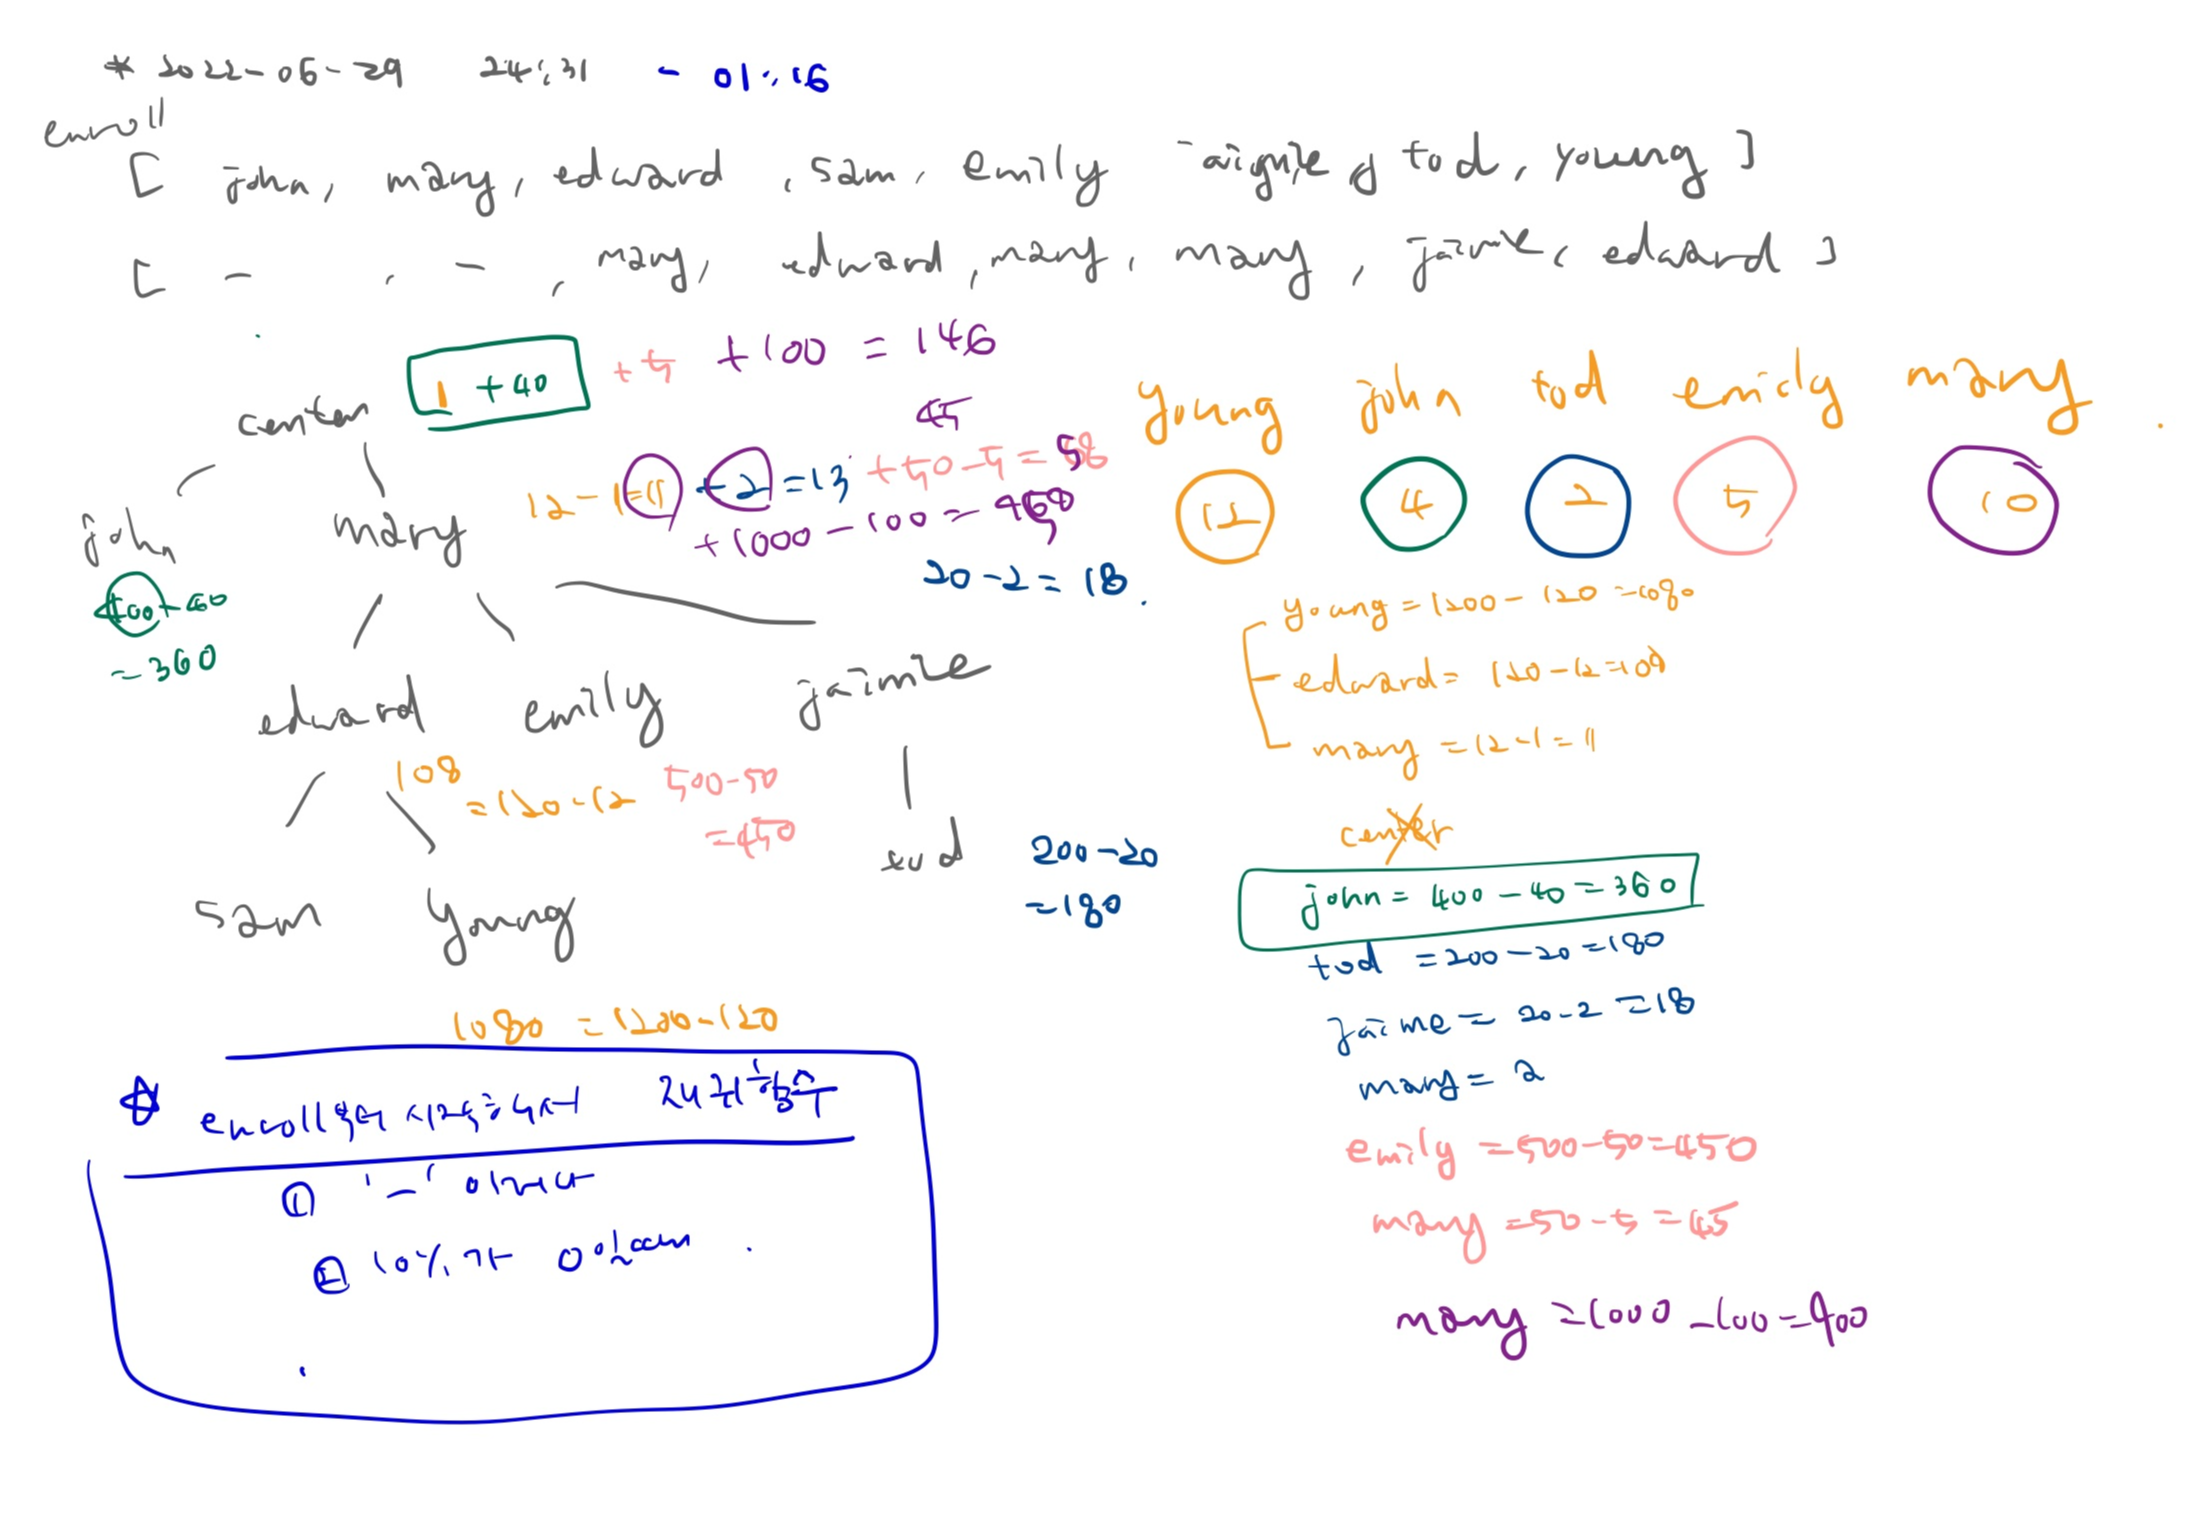 * 2022-06-29 24:31 - 01:16
enroll
[ john, mary, edward, sam, emily tod, young ]
[ - , - , mary, edward, mary, mary, jaimie, edward ]
1 + 40 + 5 + 100 = 146
center
young john tod emily mary
12 4 2 5 10
45
12 - 1 = 11 + 2 = 13 + 50 - 5 = 58
+ 1000 - 100 =
john mary
20 - 2 = 18
400 - 40
= 360
young = 1200 - 120 = 1080
edward = 120 - 12 = 108
mary = 12 - 1 = 11
center
edward emily jaimie
108
= 120 - 12
500 - 50
= 450
tod
200 - 20
= 180
john = 400 - 40 = 360
tod = 200 - 20 = 180
jaime = 20 - 2 = 18
mary = 2
sam young
1080 = 1200 - 120
emily = 500 - 50 = 450
mary = 50 - 5 = 45
mary = 1000 - 100 = 900
☆ enroll
① '-' 이거나
② 10%가 0이면